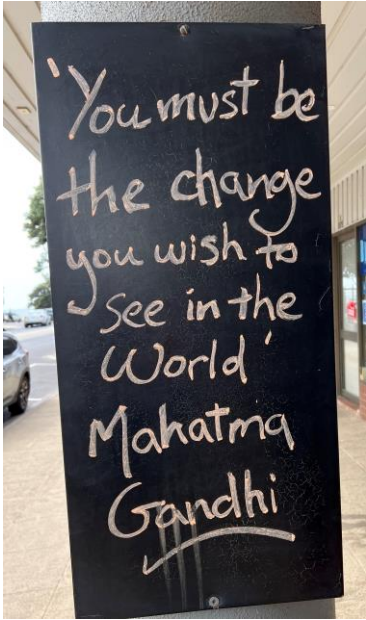 'You must be
the change
you wish to
see in the
World'
Mahatma
Gandhi